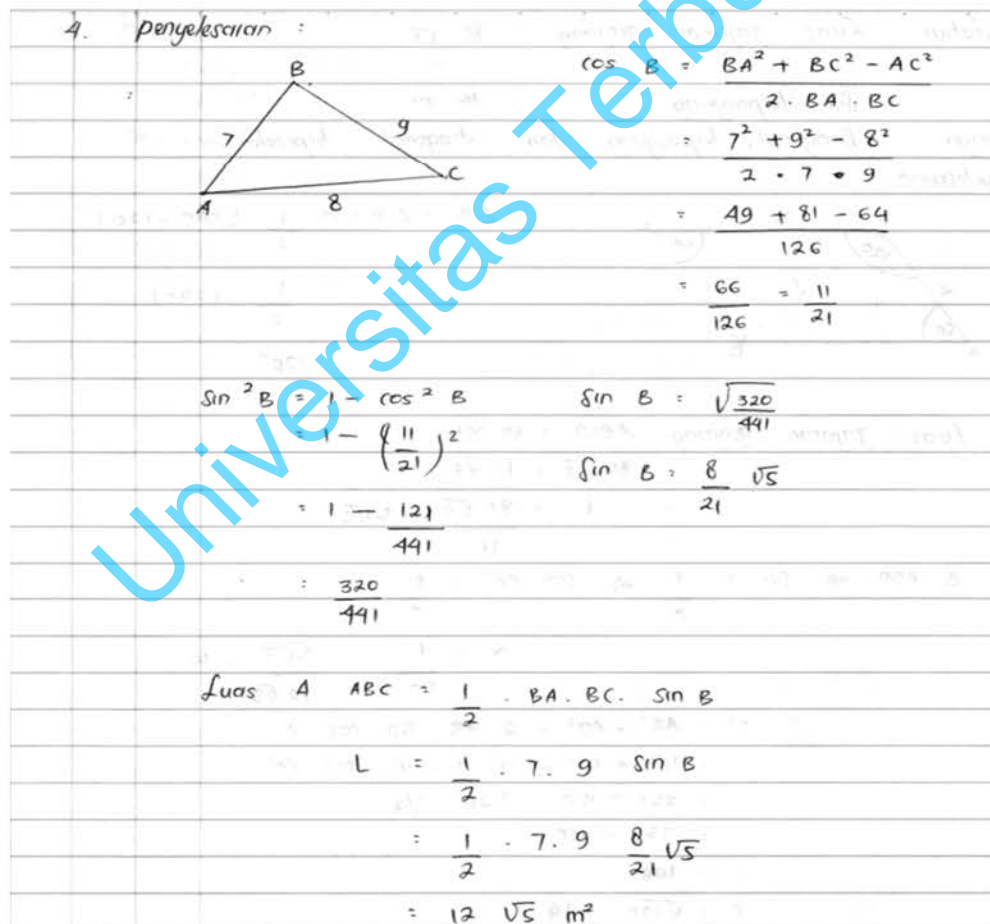 4. Penyelesaian :
B
7
9
A
8
C
cos B = BA² + BC² - AC² / 2 . BA . BC
= 7² + 9² - 8² / 2 . 7 . 9
= 49 + 81 - 64 / 126
= 66/126 = 11/21
Sin ² B = 1 - cos ² B
= 1 - (11/21)²
= 1 - 121/441
= 320/441
Sin B = √320/441
Sin B = 8/21 √5
Luas Δ ABC = 1/2 . BA . BC . Sin B
L = 1/2 . 7 . 9 Sin B
= 1/2 . 7 . 9 8/21 √5
= 12 √5 m²
Universitas Terb